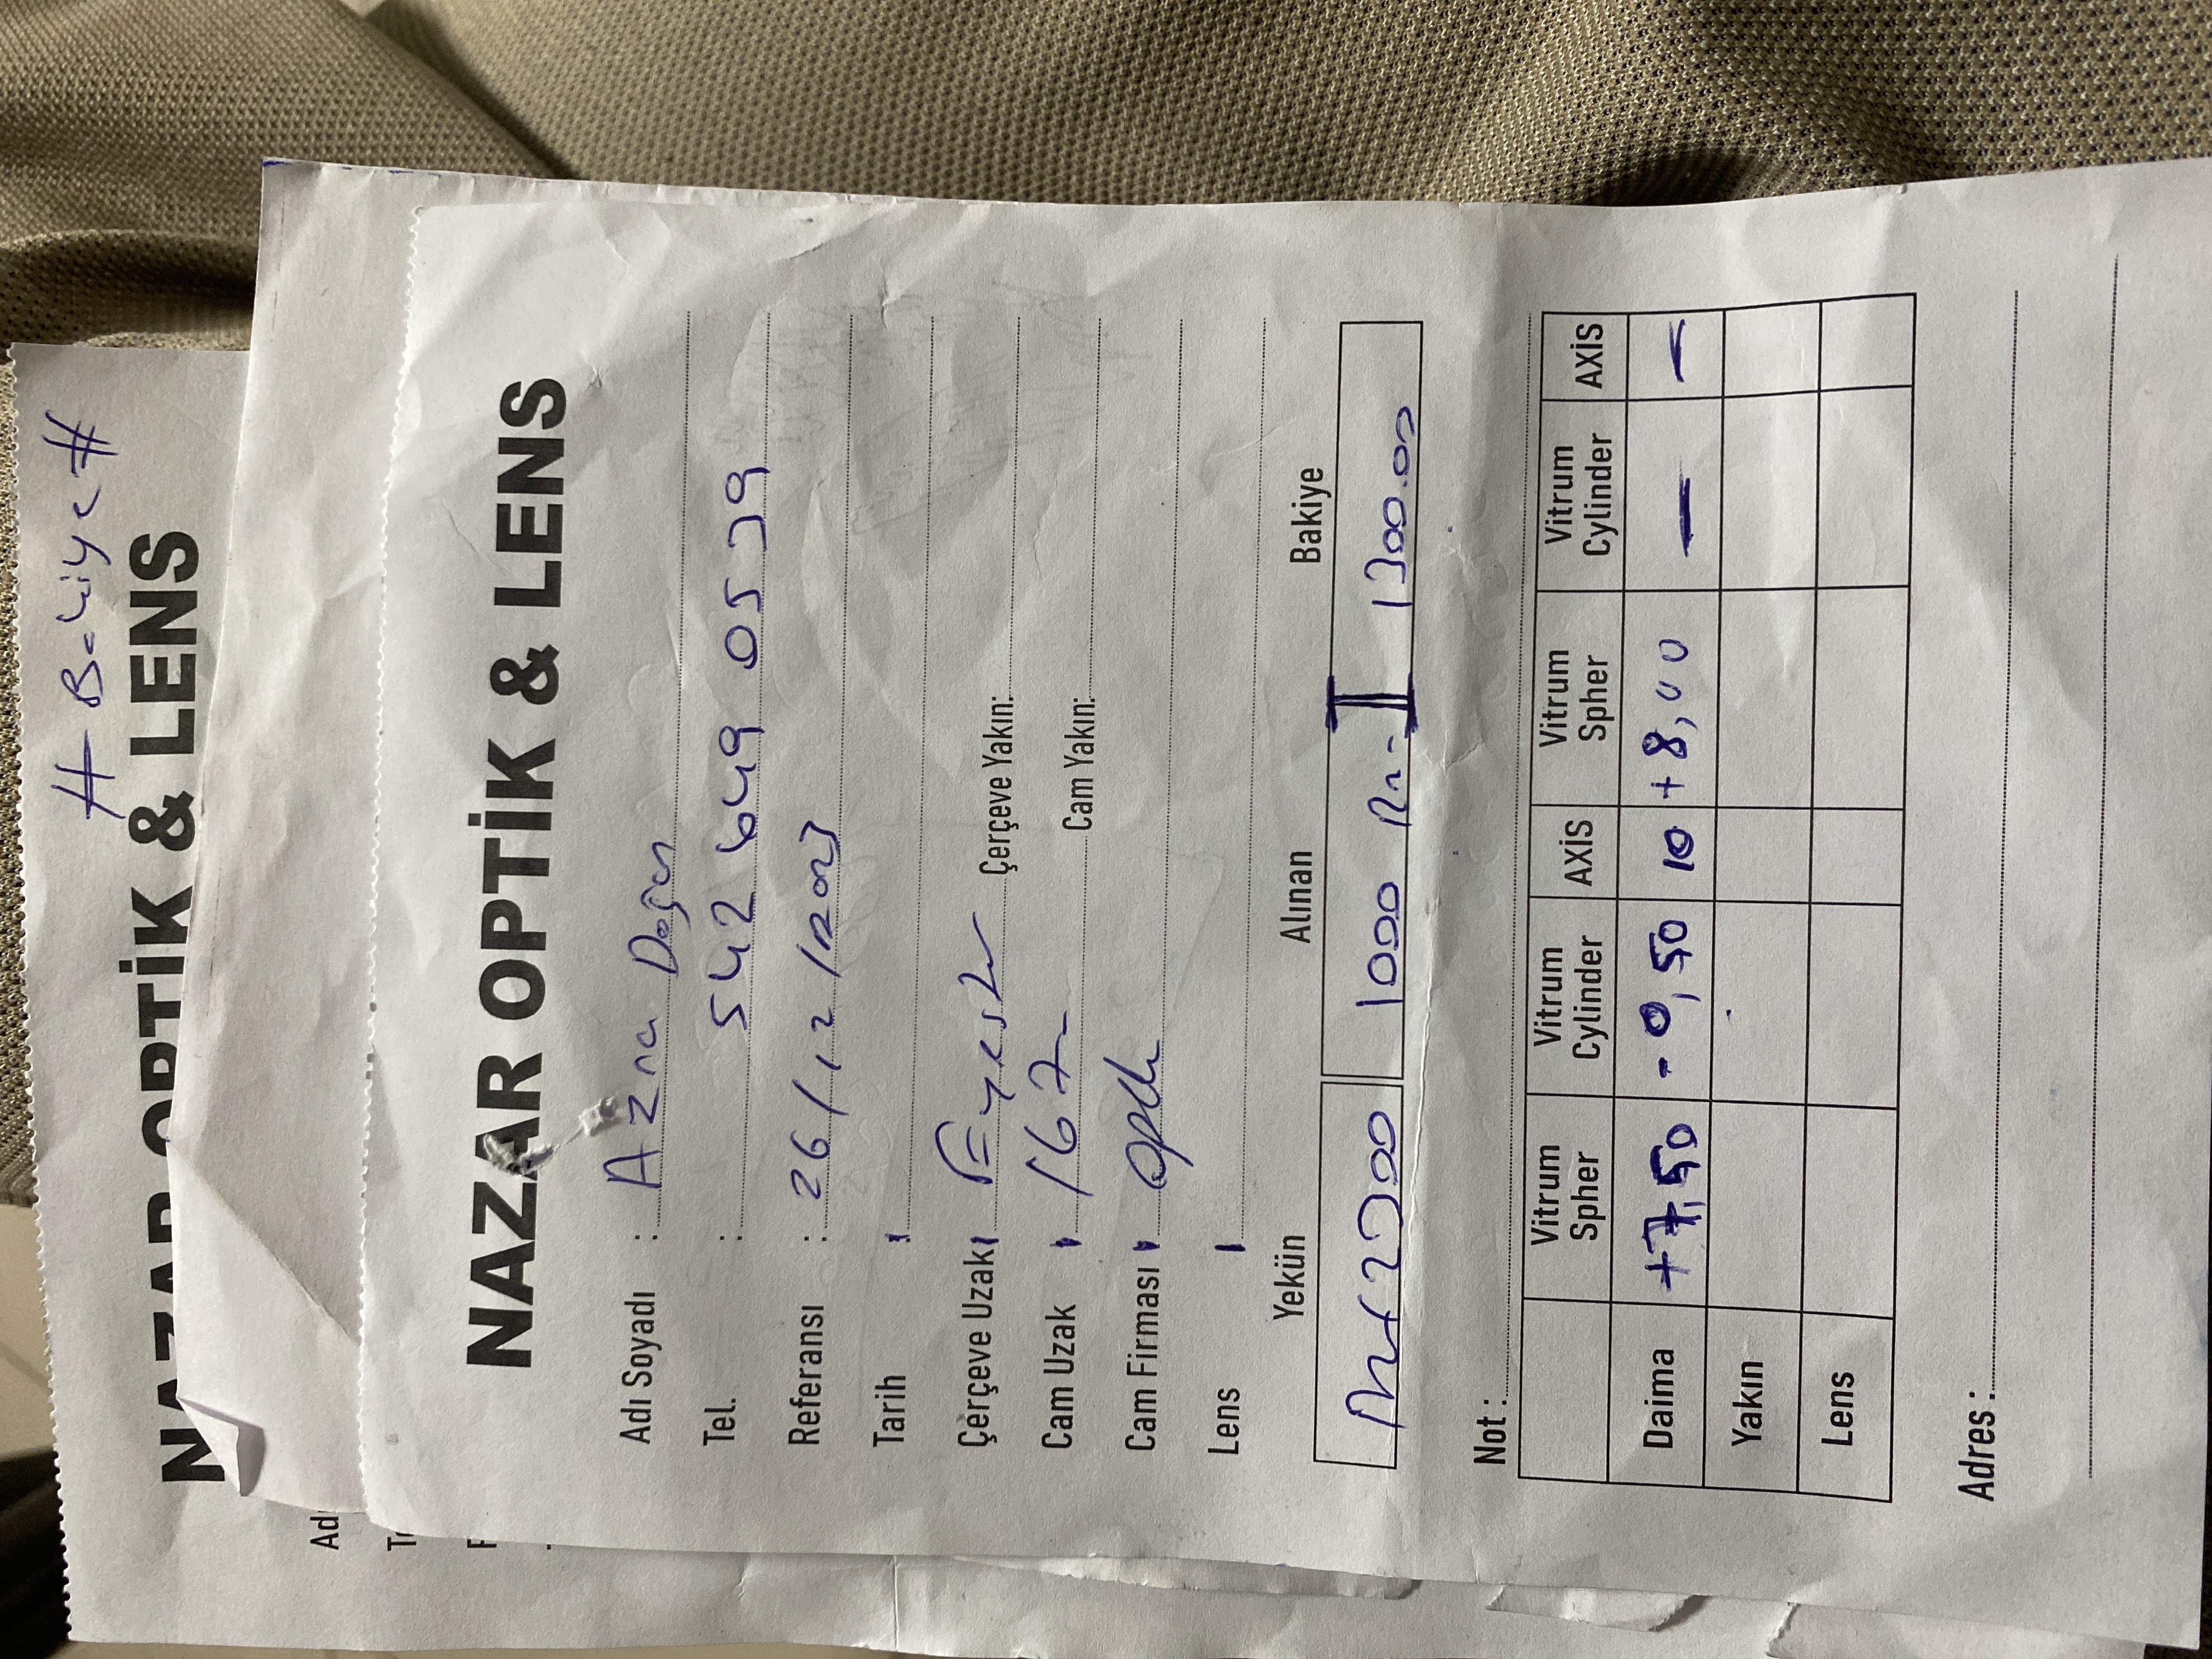 # Bakiye #
NAZAR OPTİK & LENS
Ad
NAZAR OPTİK & LENS
Adı Soyadı : Azra Doğan
Tel. : 542 649 0539
Referansı : 26/12/2023
Tarih :
Çerçeve Uzak: Çerçeve Yakın:
Cam Uzak : 167 Cam Yakın:
Cam Firması :
Lens :
Yekün Alınan Bakiye
2300 1000 1300.00
Not :
Vitrum Spher Vitrum Cylinder AXİS Vitrum Spher Vitrum Cylinder AXİS
Daima +7,50 -0,50 10 +8,00 — —
Yakın
Lens
Adres :